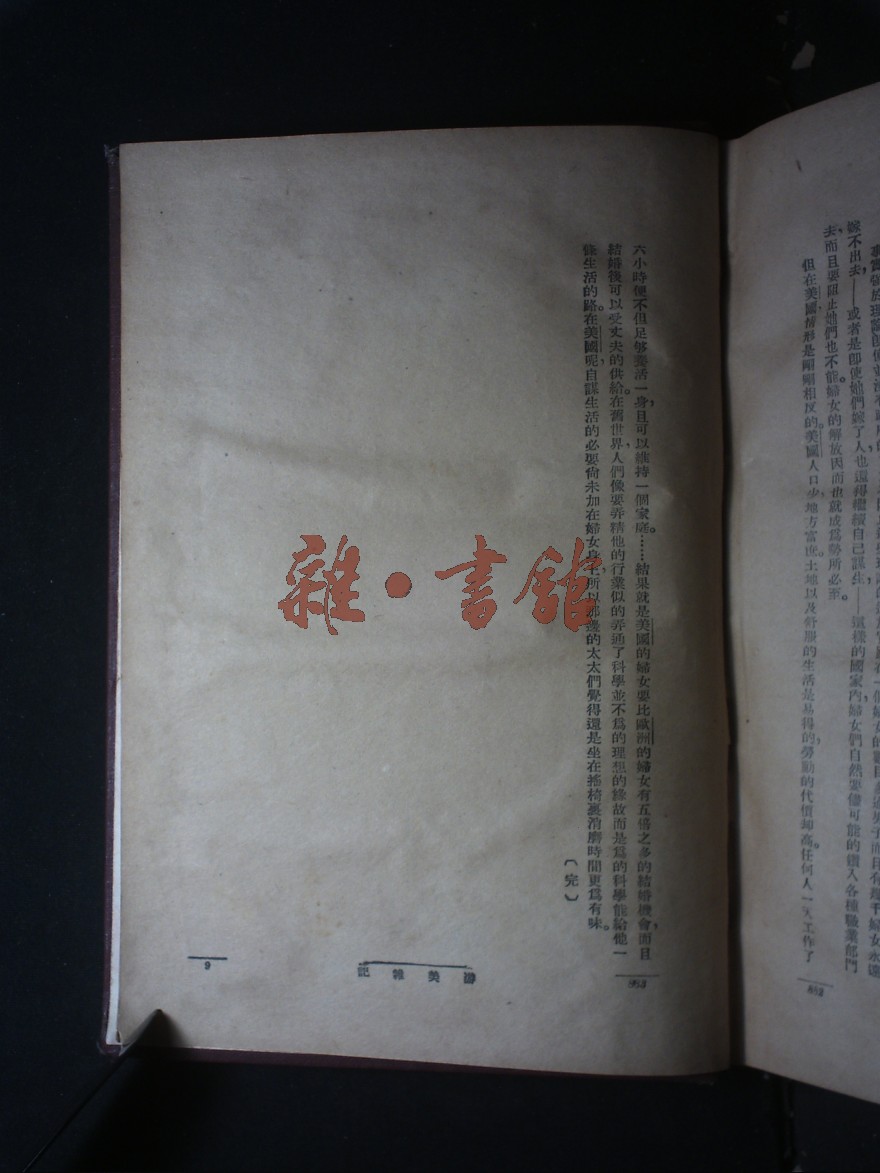 嫁不出去，——或者是即使她們嫁了人也還得繼續自己謀生，——這樣的國家內，婦女們自然要儘可能的鑽入各種職業部門
去，而且要阻止她們也不能。婦女的解放因而也就成爲勢所必至。
但在美國情形是剛剛相反的。美國人口少，地方富庶。土地以及舒服的生活是易得的，勞動的代價却高。任何人一天工作了
六小時便不但足够養活一身，且可以維持一個家庭。……結果就是美國的婦女要比歐洲的婦女有五倍之多的結婚機會，而且
結婚後可以受丈夫的供給。在舊世界，人們像要弄精他的行業似的弄通了科學，並不爲的理想的緣故而是爲的科學能給他一
條生活的路。在美國呢，自謀生活的必要尙未加在婦女身上，所以那邊的太太們覺得還是坐在搖椅裏消磨時間更爲有味。
（完）
游美雜記
9
雜·書館